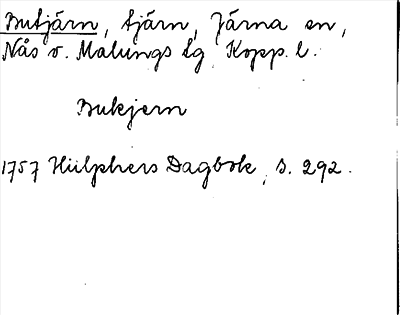 Butjärn, tjärn, Järna sn,
Nås o. Malungs tg Kopp. l.
Bukjern
1757 Hülphers Dagbok, s. 292.